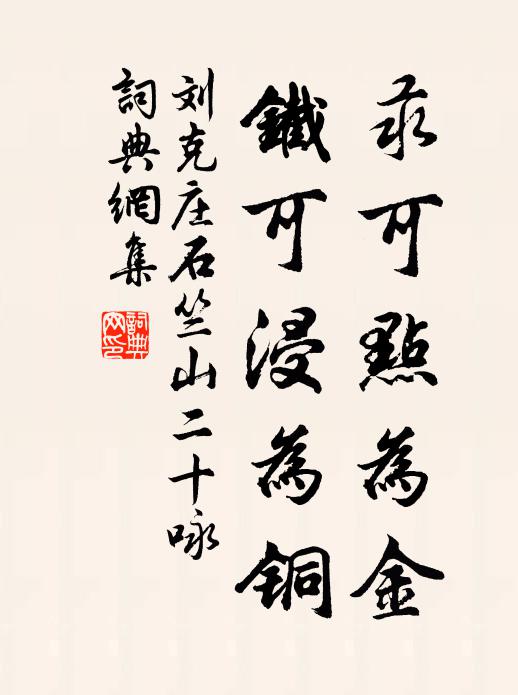 汞可點為金
鐵可浸為銅
刘克庄石竺山二十咏
詞典網集
詞典网印